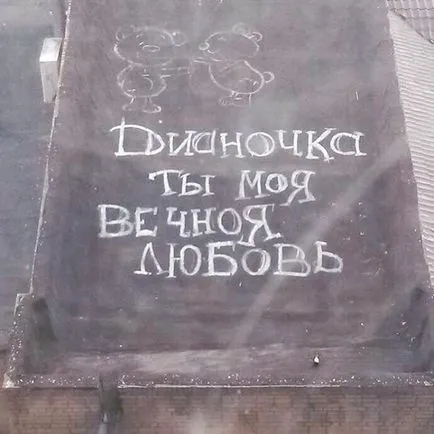 Дианочка
ты моя
вечная
любовь